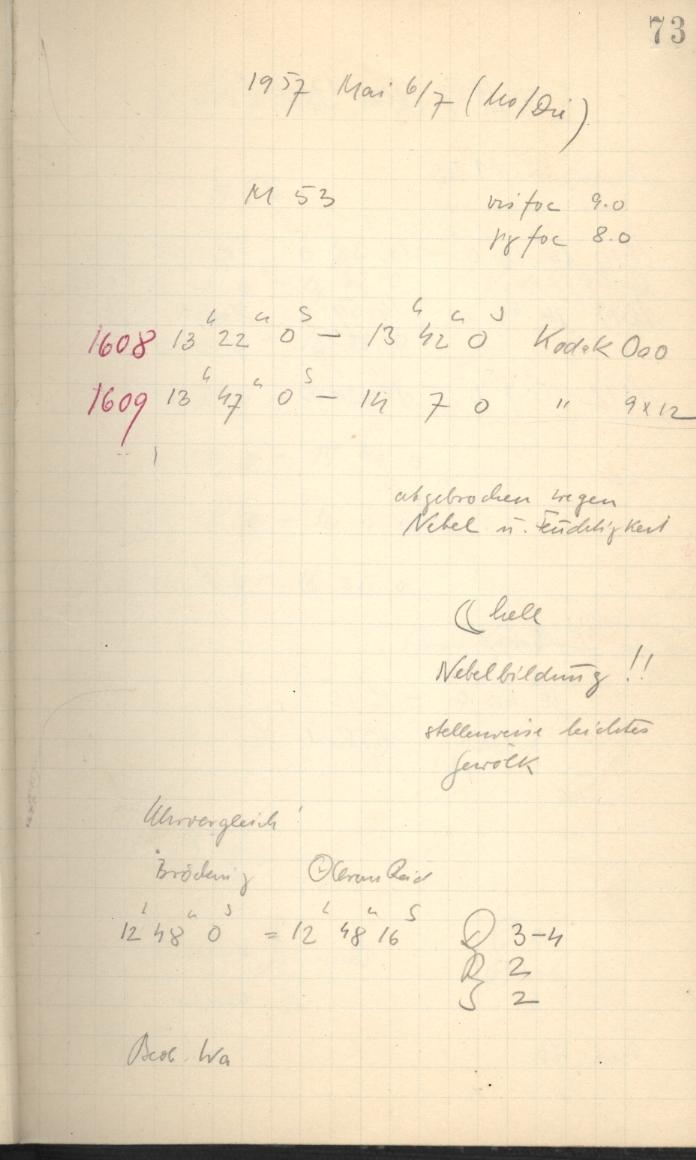 73
1957 Mai 6/7 (Mo/Die)
M 53
vis foc 9.0
pg foc 8.0
1608 13h 22m 0s — 13h 42m 0s Kodak Oao
1609 13h 47m 0s — 14 7 0 " 9x12
abgebrochen wegen
Nebel u. Feuchtigkeit
☾ hell
Nebelbildung !!
stellenweise leichtes
Gewölk
Uhrvergleich!
Bröcking
12h 48m 0s = 12h 48m 16s
D 3-4
R 2
S 2
Beob. Wa